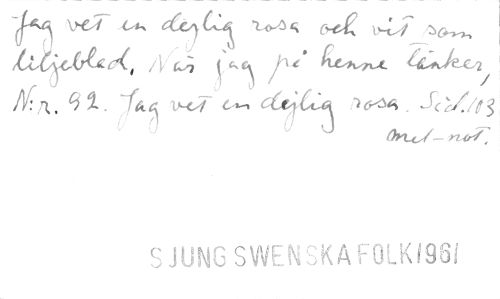 Jag vet en dejlig rosa och vit som
liljeblad. När jag på henne tänker,
N:r. 92. Jag vet en dejlig rosa. Sid. 103
mel-not.
SJUNG SWENSKA FOLK 1961